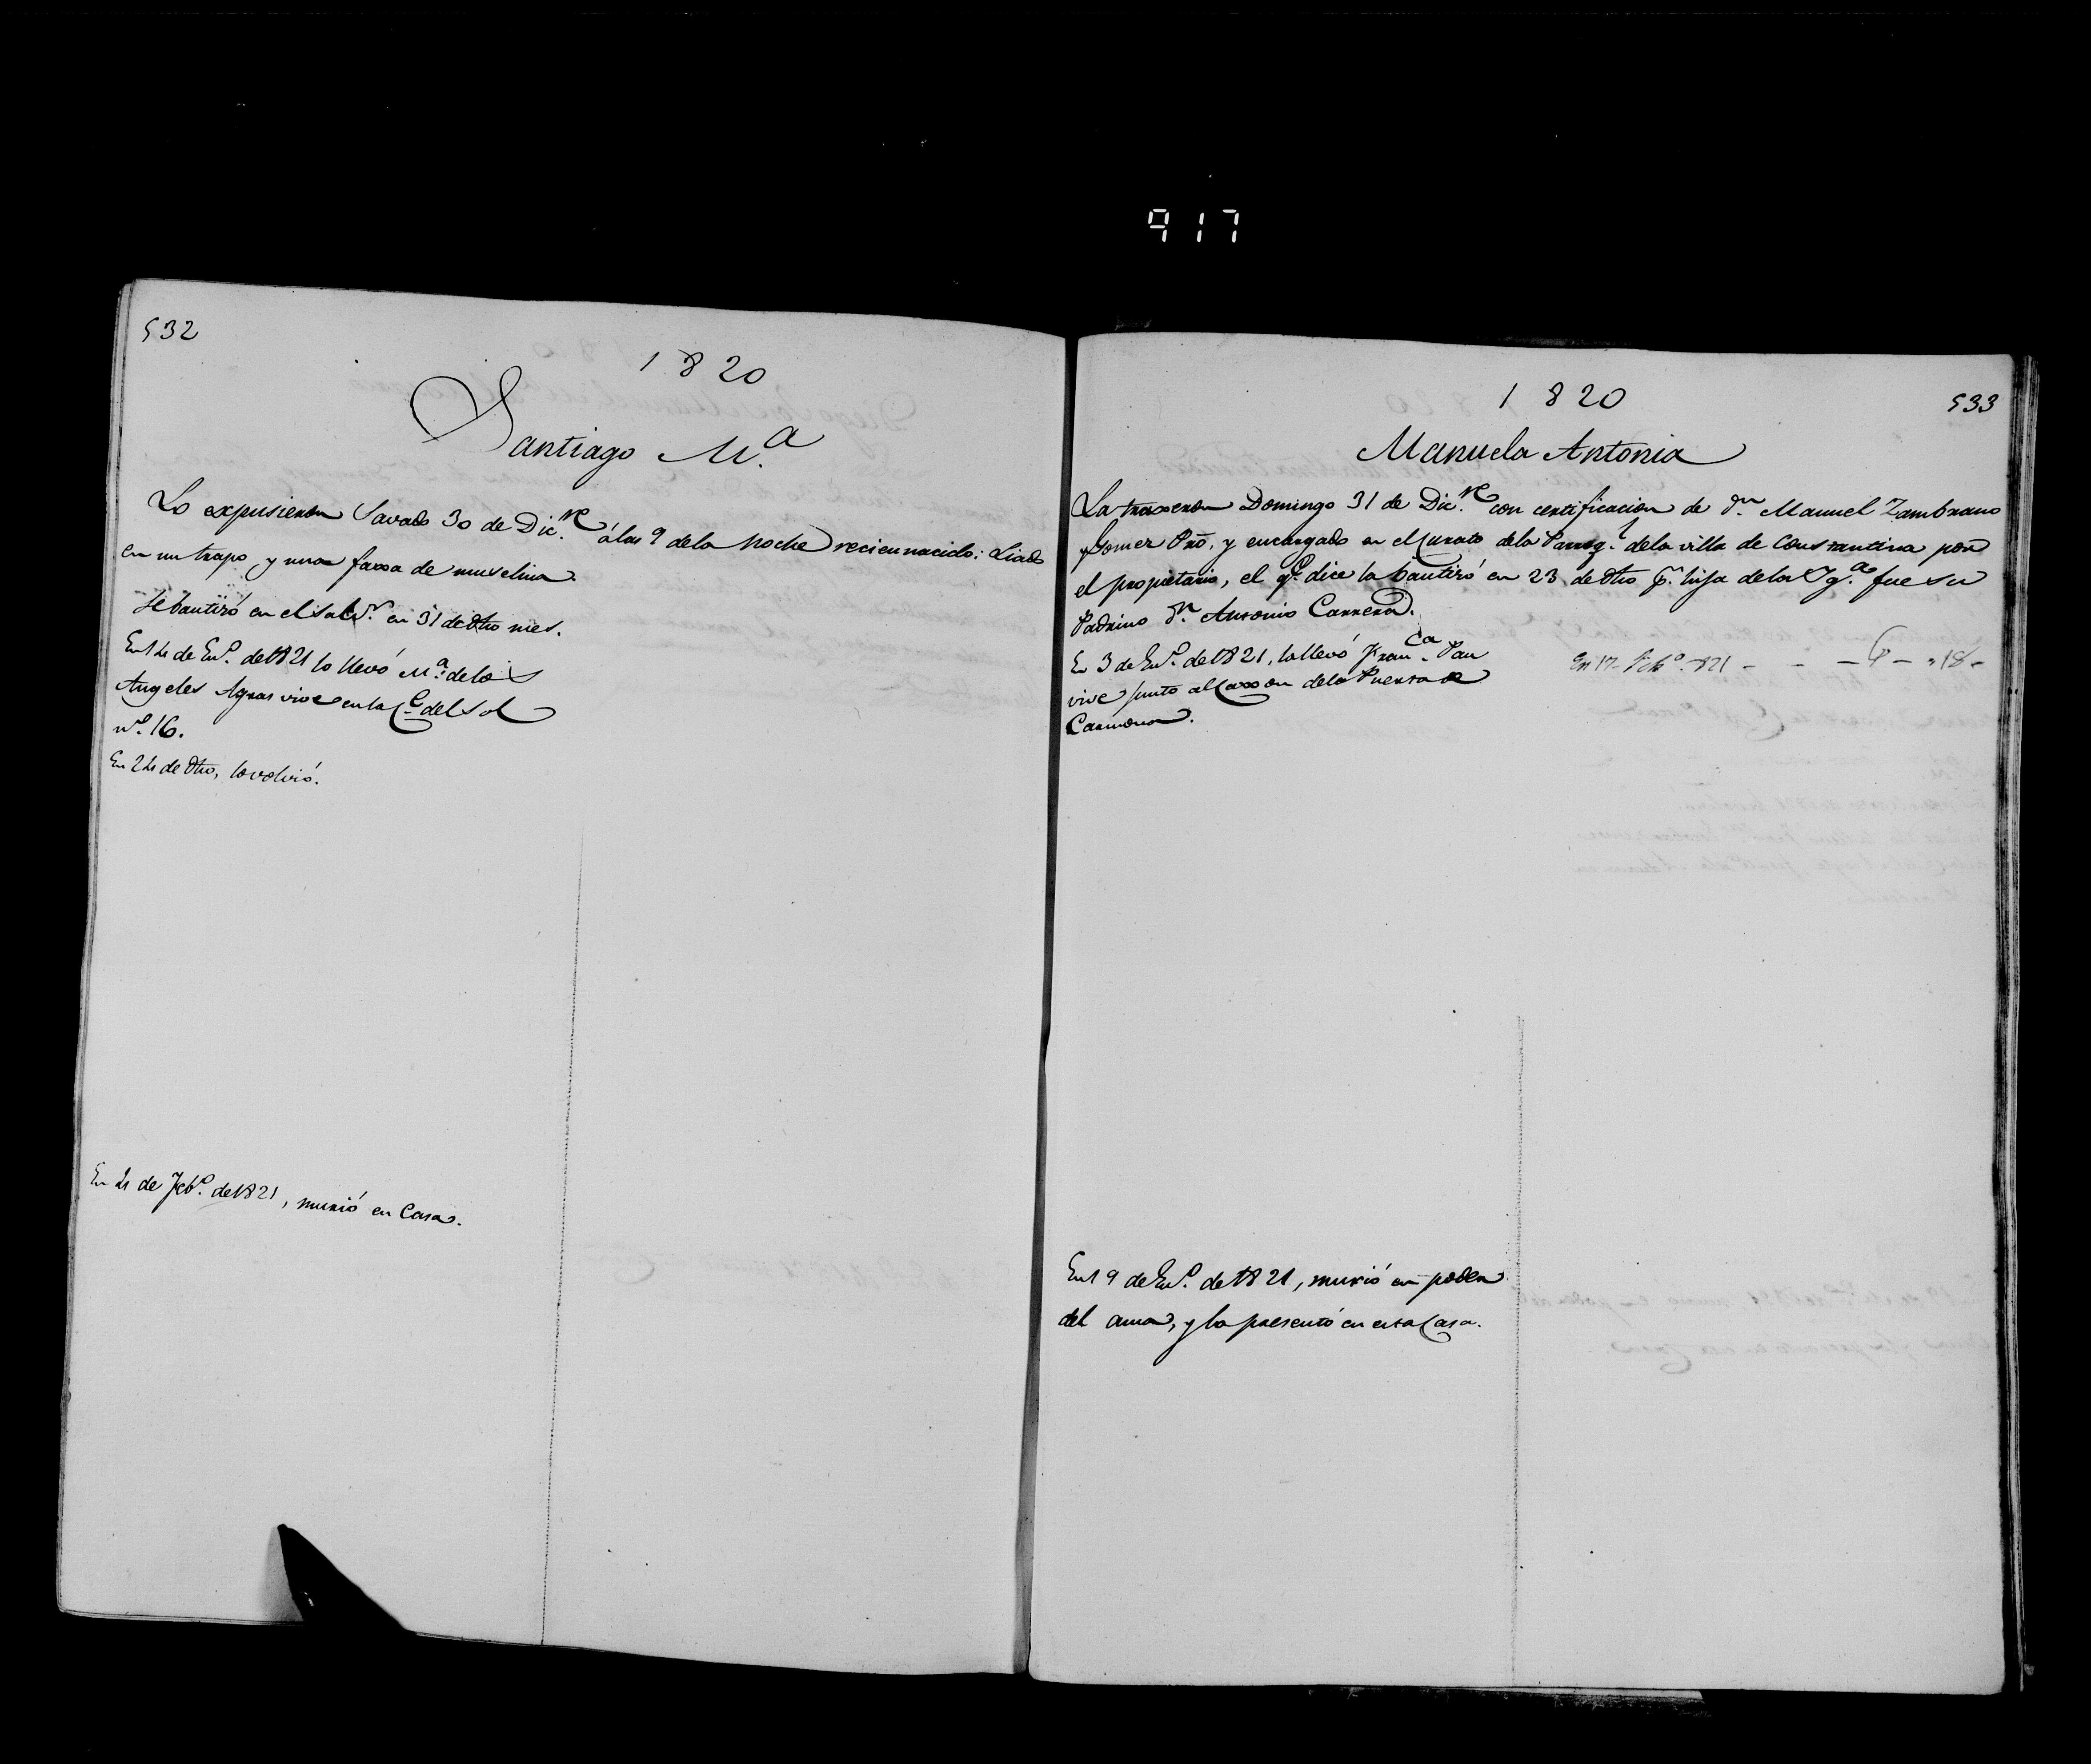 917
532
1820
Santiago M.ª
Lo expusieron Savado 30 de Dic.re á las 9 de la noche recien nacido: Liado
en un trapo y una faxa de muselina.
Se bautizó en el Salv.r en 31 de dho mes.
En 14 de En.o de 1821 lo llevó M.ª de los
Angeles Agras vive en la C.e del Sol
n.o 16.
En 24 de dho, lo volvió.
En 4 de Feb.o de 1821, murió en Casa.
1820
533
Manuela Antonia
La traxeron Domingo 31 de Dic.re con certificacion de d.n Manuel Zambrano
y Gomez Pro, y encargado en el Curato de la Parroq.l de la villa de Constantina por
el propietario, el q.e dice la bautizó en 23 de dho p.r hija de la Yg.ª fue su
Padrino d.n Antonio Carrera.
En 3 de En.o de 1821, la llevó Fran.ca Pau
vive junto al Caxon de la Puerta de
Carmona.
En 17 Feb.o 821 - - - - 18 -
En 19 de En.o de 1821, murió en poder
del ama, y la presentó en esta Casa.